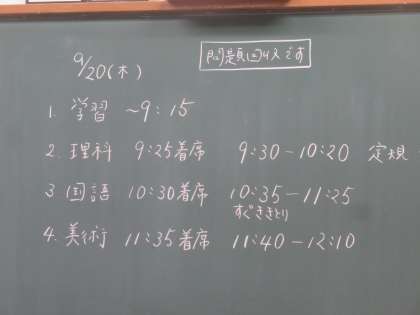 9/20(木)
問題回収です
1. 学習 ~9:15
2. 理科 9:25着席 9:30-10:20 定規
3 国語 10:30着席 10:35-11:25
すぐききとり
4. 美術 11:35着席 11:40-12:10